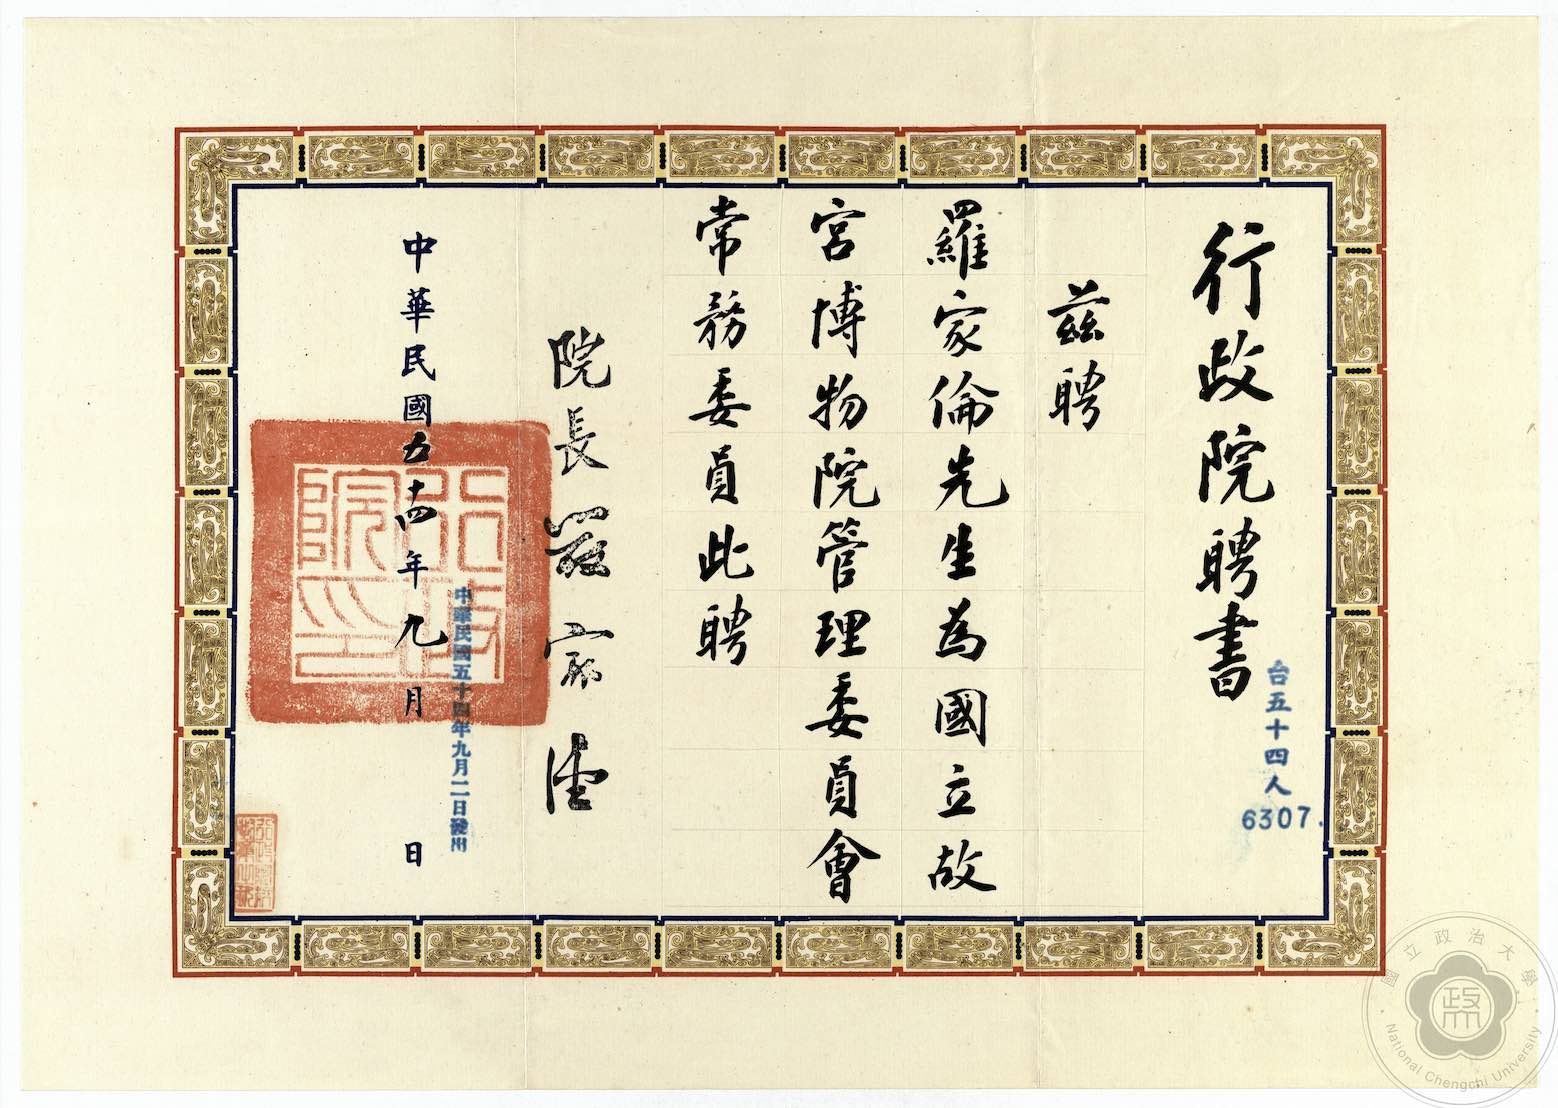 行政院聘書
台五十四人
6307.
茲聘
羅家倫先生為國立故
宮博物院管理委員會
常務委員此聘
院長嚴家淦
中華民國五十四年九月二日發出
中華民國五十四年九月 日
行政院印
國立政治大學
National Chengchi University